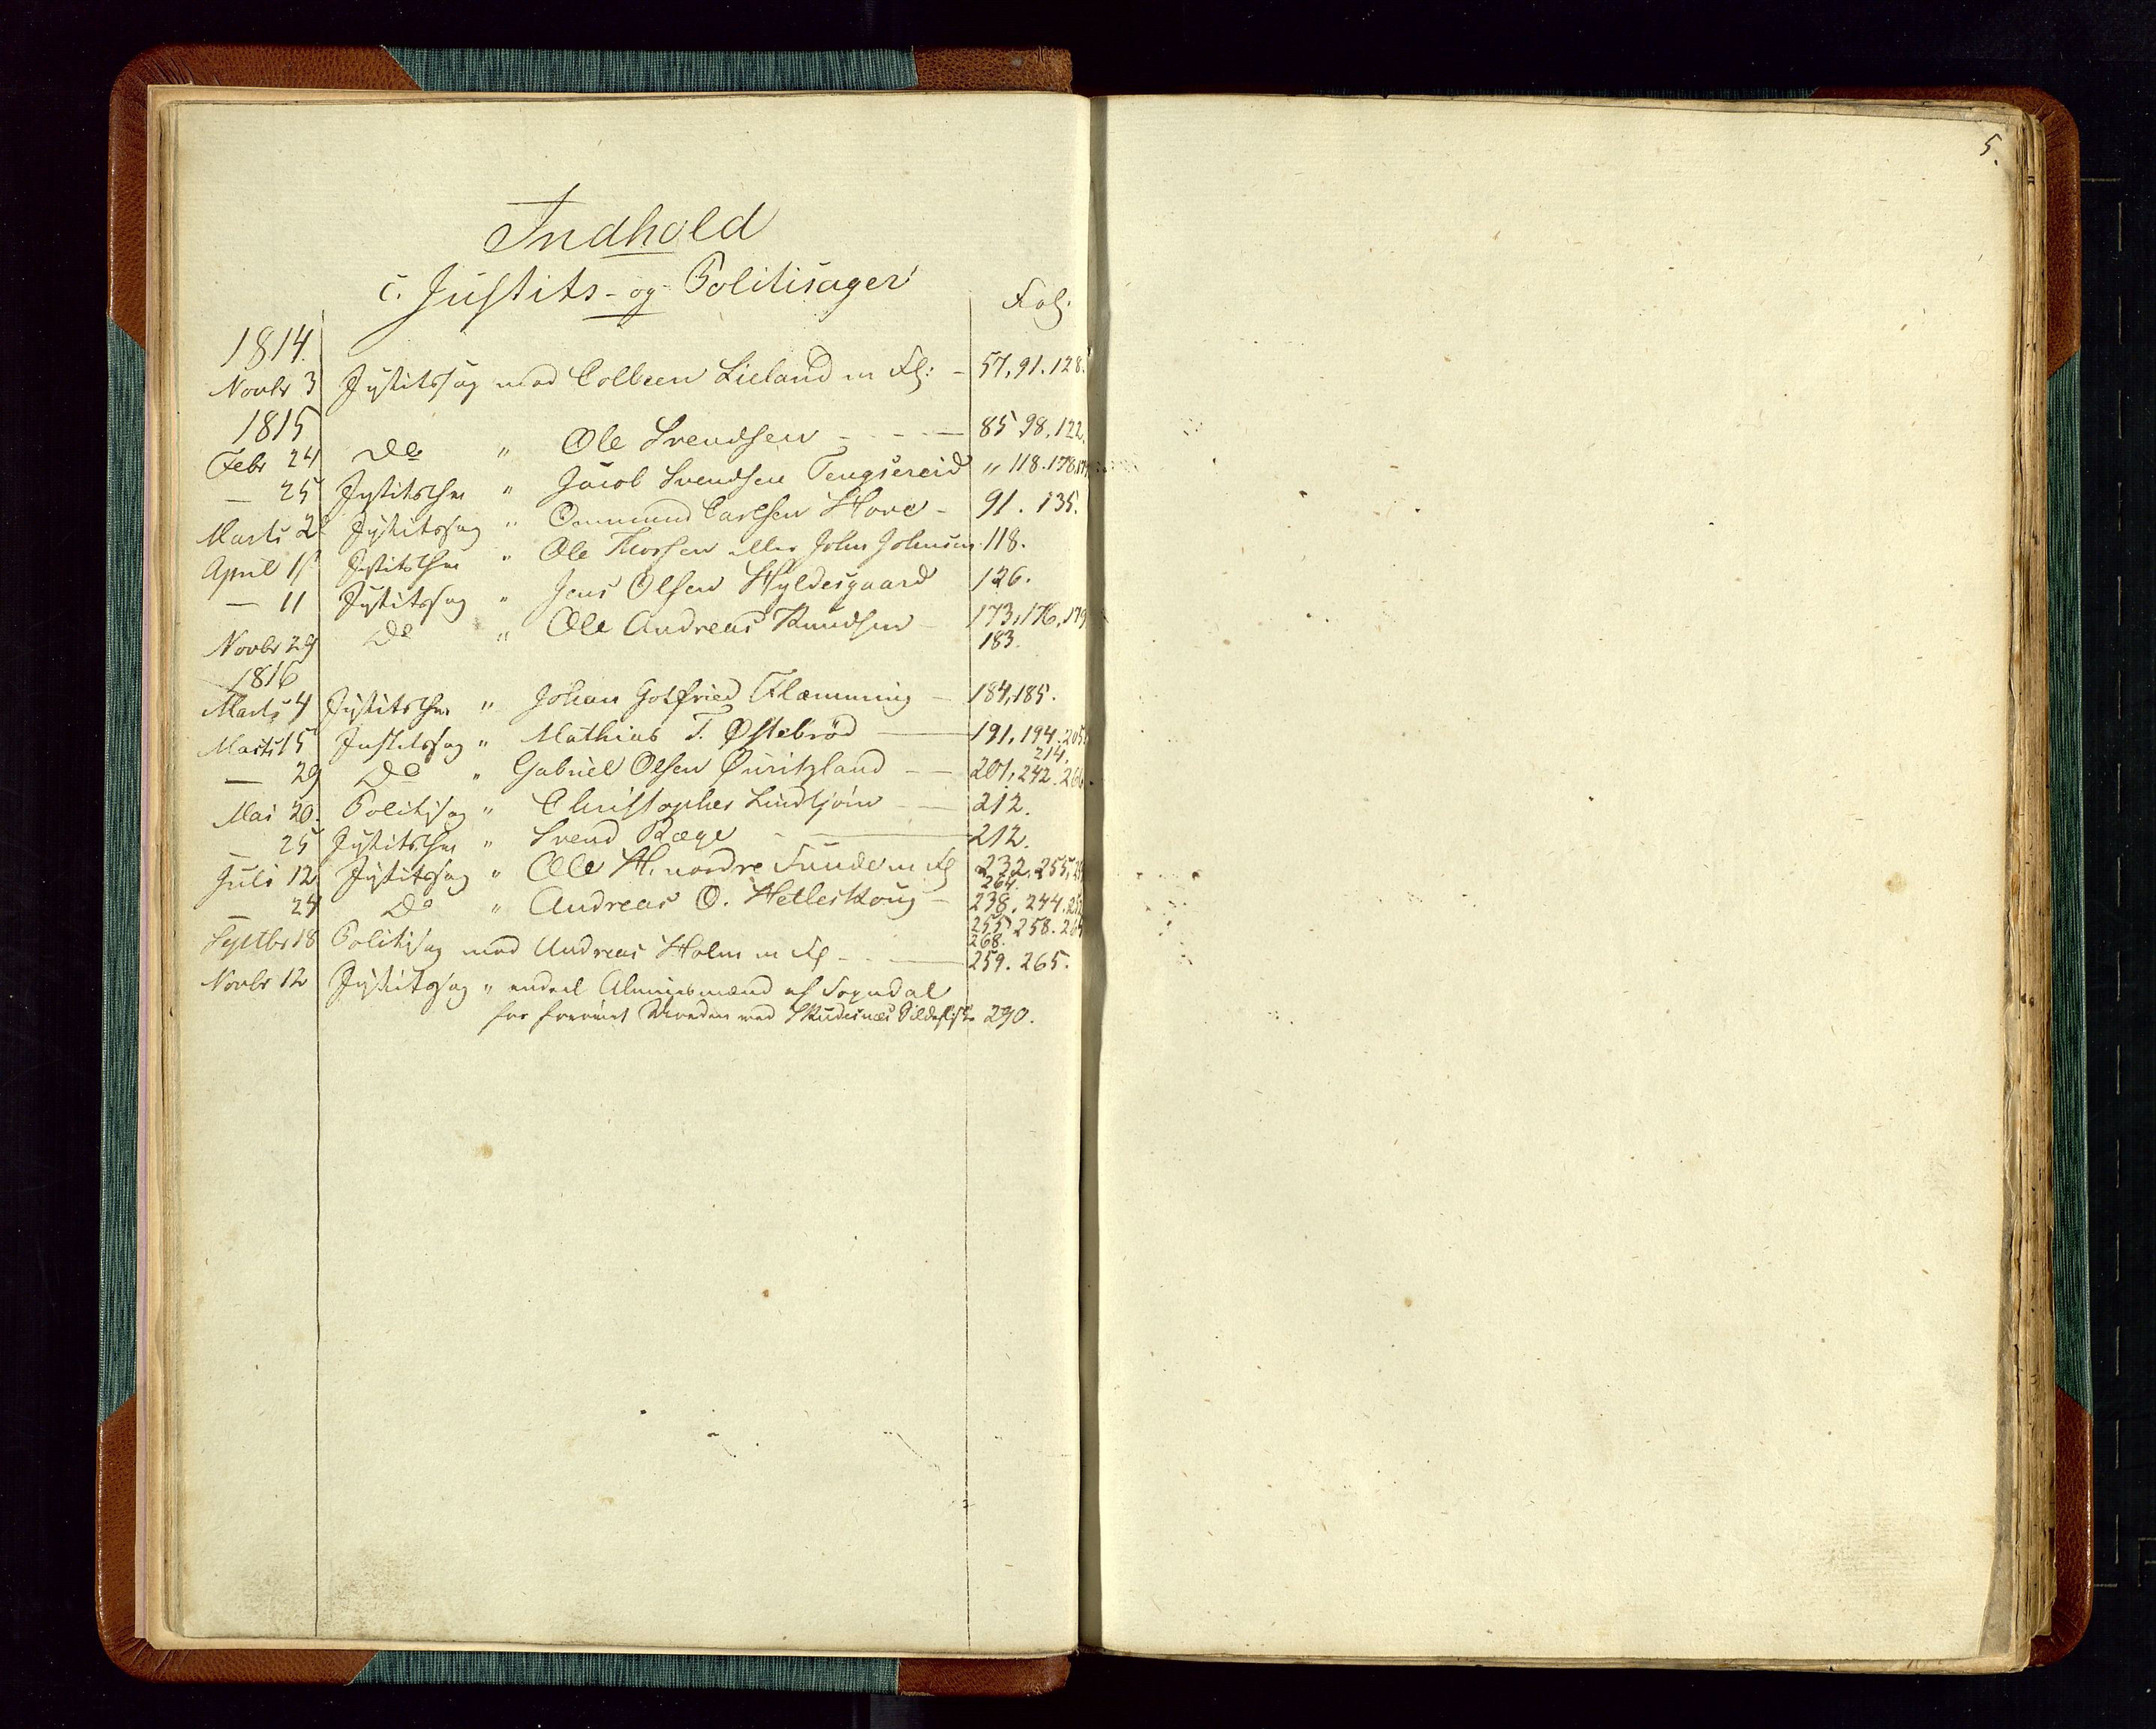 5.
Indhold
c. Justits- og Politisager
Fol:
1814.
Novbr 3 Justitssag mod Colbeen Lieland m Fl: - 57, 91. 128.
1815
Febr 24 Do " Ole Svendsen - - - 85 98. 122.
— 25 Justits " Jacob Svendsen Tengsereid " 118. 178.
Marts 2 Justitssag " Ommund Carlsen Hove - 91. 135.
April 1 Justits " Ole Thorsen eller John Johnsen 118.
— 11 Justitssag " Jens Olsen Hyldesgaard 126.
Novbr 29 Do " Ole Andreas Knudsen - 173, 176, 179
183.
1816
Marts 4 Justits " Johan Gotfried Flæmming — 184, 185.
Marts 15 Justitssag " Mathias T. Østebrød — 191, 194. 205.
214.
— 29 Do " Gabriel Olsen Øvritzland — 201, 242. 266.
Mai 20. Politisag " Christopher Lindtjørn — 212.
— 25 Justits " Svend Ræge — 212.
Juli 12 Justitssag " Ole H. nordre Sunde m Fl 232, 255,
264.
— 24 Do " Andreas O. Hetleskoug - 238, 244.
255 258. 264
268.
Septbr 18 Politisag mod Andreas Holm m Fl — 259. 265.
Novbr 12 Justitssag " endeel Almuesmænd af Sogndal
for Skudesnæs Sildefiske 290.